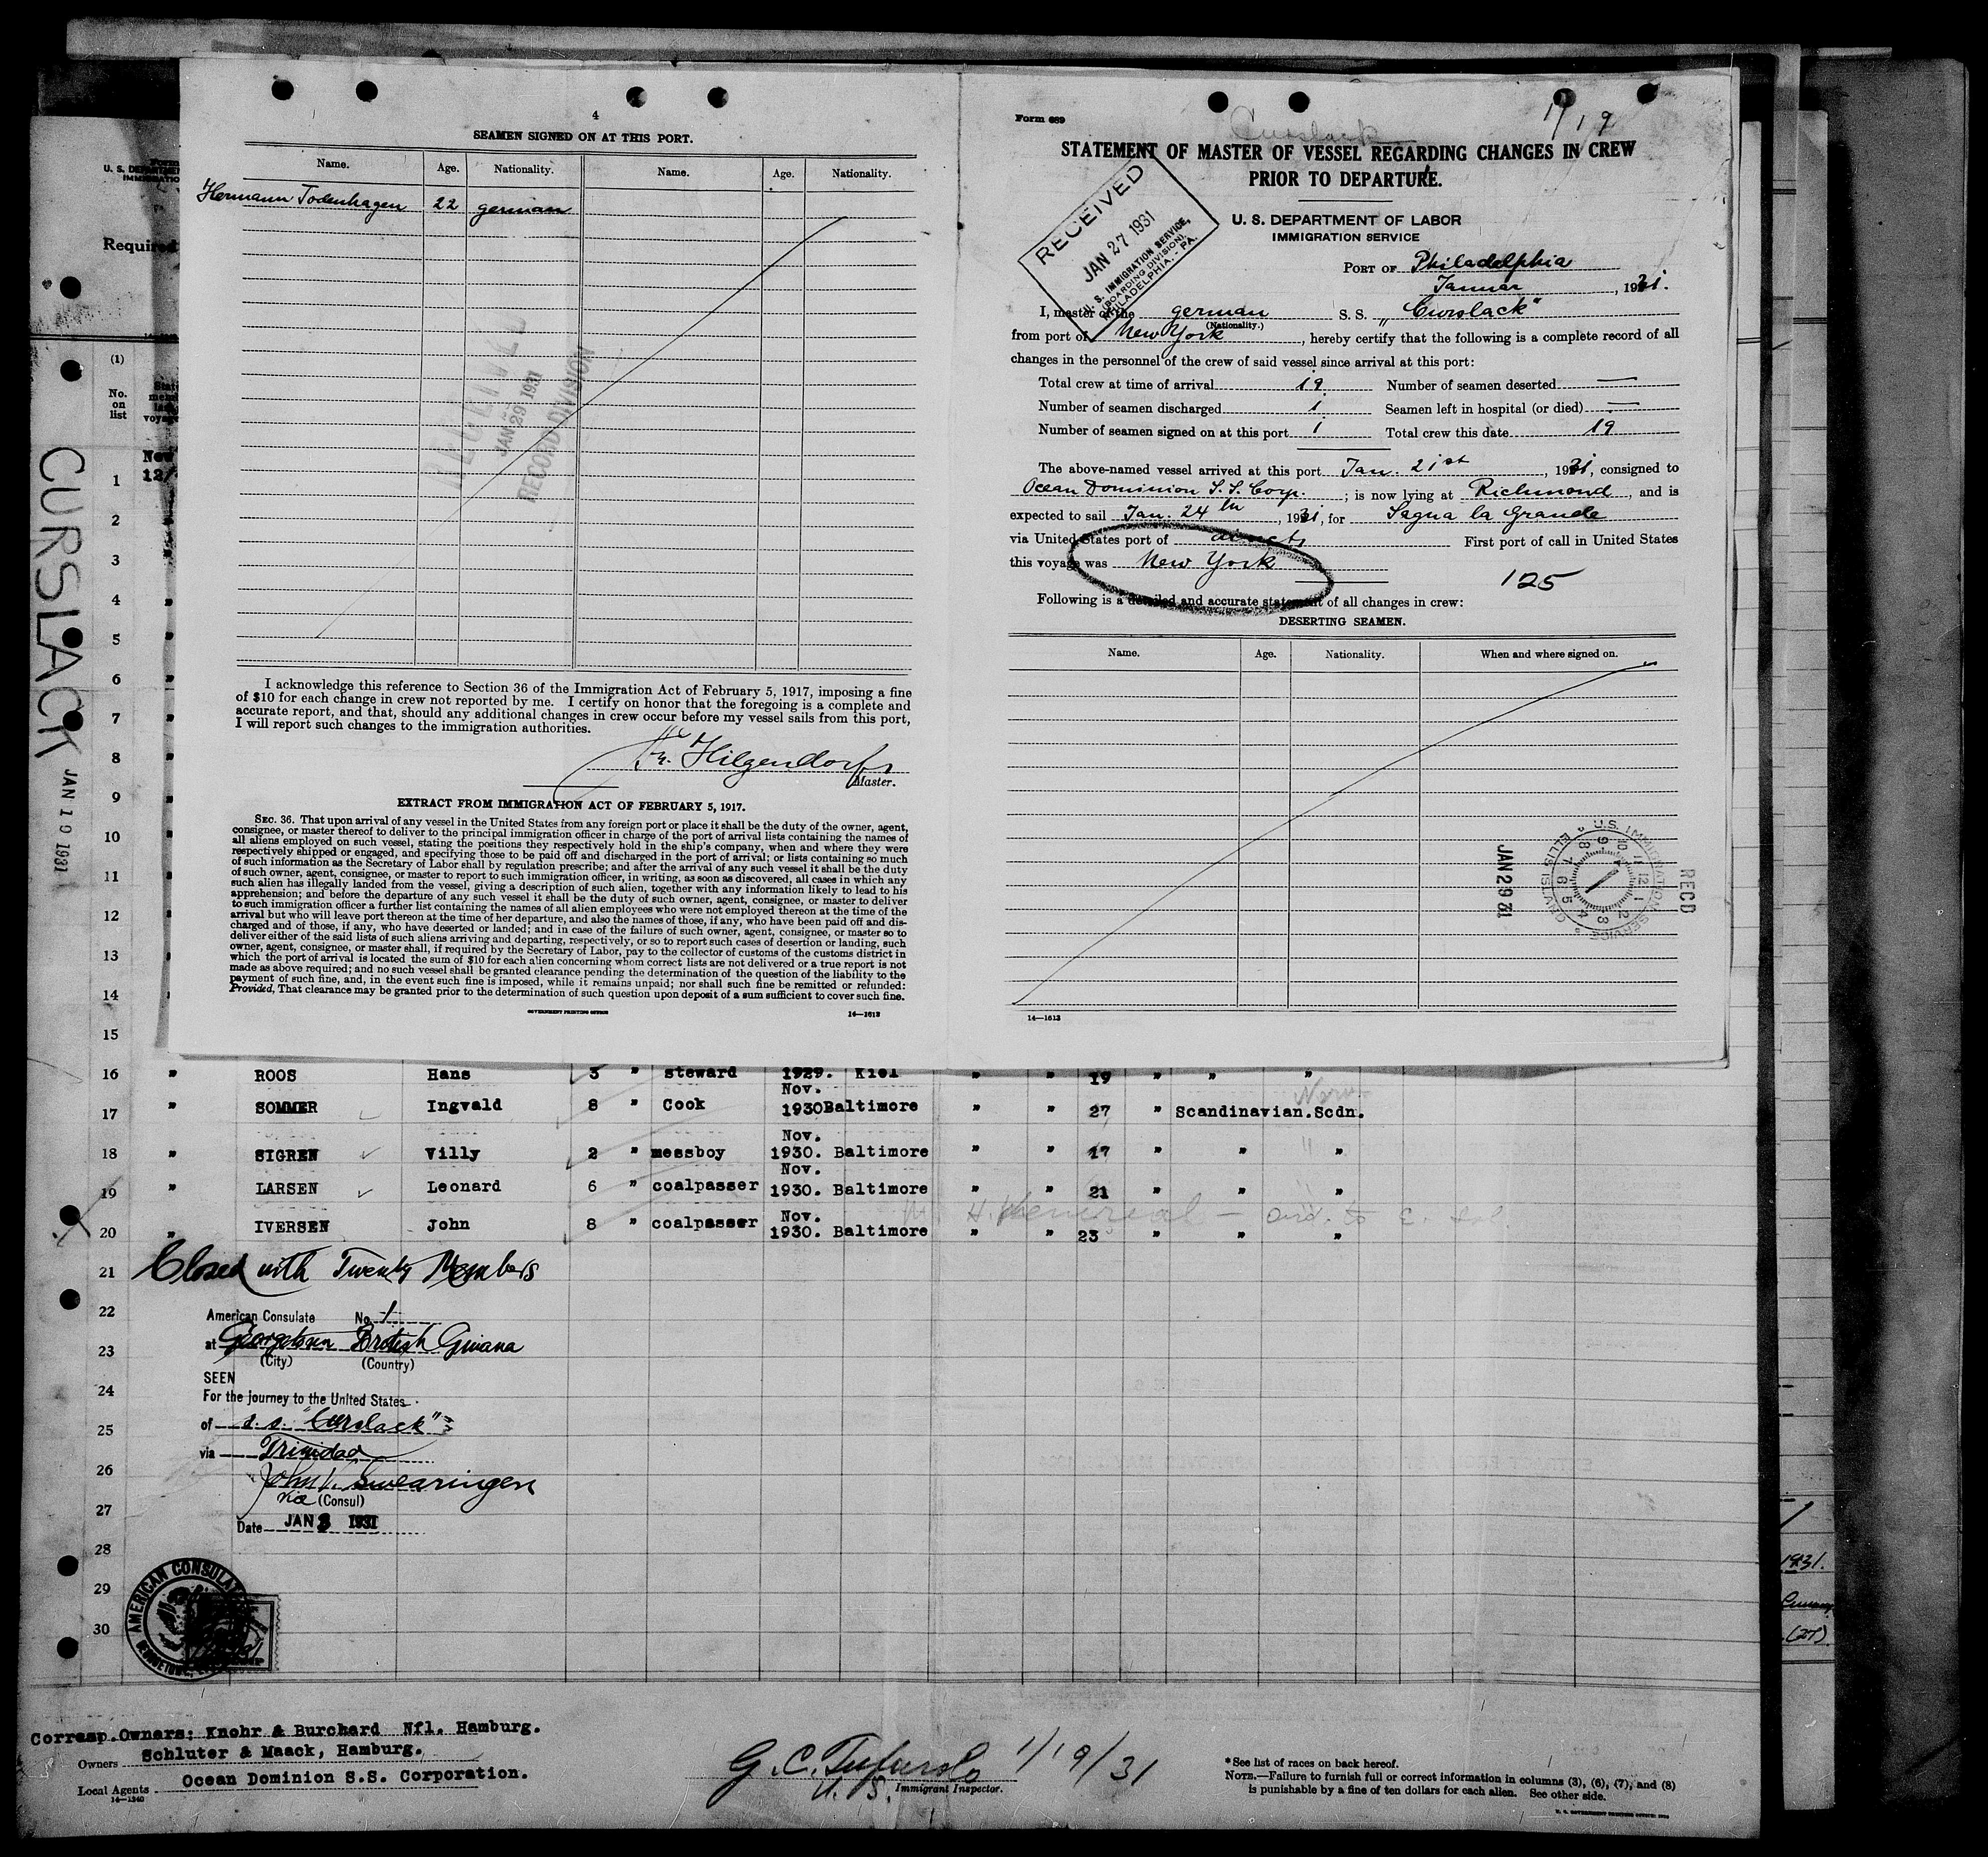 4
SEAMEN SIGNED ON AT THIS PORT.
Name. Age. Nationality. Name. Age. Nationality.
Hermann Todenhagen 22 german
JAN 29 1931
RECORD DIVISION
I acknowledge this reference to Section 36 of the Immigration Act of February 5, 1917, imposing a fine
of $10 for each change in crew not reported by me. I certify on honor that the foregoing is a complete and
accurate report, and that, should any additional changes in crew occur before my vessel sails from this port,
I will report such changes to the immigration authorities.
Hilgendorf
Master.
EXTRACT FROM IMMIGRATION ACT OF FEBRUARY 5, 1917.
SEC. 36. That upon arrival of any vessel in the United States from any foreign port or place it shall be the duty of the owner, agent,
consignee, or master thereof to deliver to the principal immigration officer in charge of the port of arrival lists containing the names of
all aliens employed on such vessel, stating the positions they respectively hold in the ship's company, when and where they were
respectively shipped or engaged, and specifying those to be paid off and discharged in the port of arrival; or lists containing so much
of such information as the Secretary of Labor shall by regulation prescribe; and after the arrival of any such vessel it shall be the duty
of such owner, agent, consignee, or master to report to such immigration officer, in writing, as soon as discovered, all cases in which any
such alien has illegally landed from the vessel, giving a description of such alien, together with any information likely to lead to his
apprehension; and before the departure of any such vessel it shall be the duty of such owner, agent, consignee, or master to deliver
to such immigration officer a further list containing the names of all alien employees who were not employed thereon at the time of the
arrival but who will leave port thereon at the time of her departure, and also the names of those, if any, who have been paid off and dis-
charged and of those, if any, who have deserted or landed; and in case of the failure of such owner, agent, consignee, or master so to
deliver either of the said lists of such aliens arriving and departing, respectively, or so to report such cases of desertion or landing, such
owner, agent, consignee, or master shall, if required by the Secretary of Labor, pay to the collector of customs of the customs district in
which the port of arrival is located the sum of $10 for each alien concerning whom correct lists are not delivered or a true report is not
made as above required; and no such vessel shall be granted clearance pending the determination of the question of the liability to the
payment of such fine, and, in the event such fine is imposed, while it remains unpaid; nor shall such fine be remitted or refunded:
Provided, That clearance may be granted prior to the determination of such question upon deposit of a sum sufficient to cover such fine.
GOVERNMENT PRINTING OFFICE 14—1613
Form 689
Curslack
1/19
STATEMENT OF MASTER OF VESSEL REGARDING CHANGES IN CREW
PRIOR TO DEPARTURE.
RECEIVED
JAN 27 1931
U. S. IMMIGRATION SERVICE,
(BOARDING DIVISION)
PHILADELPHIA, PA.
U. S. DEPARTMENT OF LABOR
IMMIGRATION SERVICE
PORT OF Philadelphia
Januar, 1931.
I, master of the german S. S. „Curslack"
(Nationality.)
from port of New York, hereby certify that the following is a complete record of all
changes in the personnel of the crew of said vessel since arrival at this port:
Total crew at time of arrival 19. Number of seamen deserted —
Number of seamen discharged 1 Seamen left in hospital (or died) —
Number of seamen signed on at this port 1 Total crew this date 19
The above-named vessel arrived at this port Jan. 21st, 1931, consigned to
Ocean Dominion S. S. Corp.; is now lying at Richmond, and is
expected to sail Jan. 24th, 1931, for Sagua la Grande
via United States port of direct First port of call in United States
this voyage was New York
125
Following is a detailed and accurate statement of all changes in crew:
DESERTING SEAMEN.
Name. Age. Nationality. When and where signed on.
U.S. IMMIGRATION SERVICE
ELLIS ISLAND
JAN 29 31
RECD
14—1613
U. S. DEPARTMENT
Required
(1)
No. on list
CURSLACK
JAN 10 1931
1
2
3
4
5
6
7
8
9
10
11
12
13
14
15
16 " ROOS Hans 3 " steward 1929. Kiel " " 19 " " "
17 " SOMMER Ingvald 8 " Cook Nov. 1930 Baltimore " " 27 " Scandinavian. Scdn.
18 " SIGREN Villy 2 " messboy Nov. 1930. Baltimore " " 17 " " "
19 " LARSEN Leonard 6 " coalpasser Nov. 1930. Baltimore " " 21 " " "
20 " IVERSEN John 8 " coalpasser Nov. 1930. Baltimore " " 23 " " "
21 Closed with Twenty Members
22 American Consulate No. 1
at Georgetown British Guiana
23 (City) (Country)
SEEN
24 For the journey to the United States
25 of s.s. "Curslack"
via Trinidad
26 John L. Swearingen
Vice (Consul)
27 Date JAN 3 1931
28
29
30
AMERICAN CONSULATE
Corresp. Owners: Knohr & Burchard Nfl. Hamburg.
Owners Schluter & Maack, Hamburg.
Local Agents Ocean Dominion S.S. Corporation.
14—1240
1/19/31
Immigrant Inspector.
*See list of races on back hereof.
NOTE.—Failure to furnish full or correct information in columns (3), (6), (7), and (8)
is punishable by a fine of ten dollars for each alien. See other side.
1931.
(27)